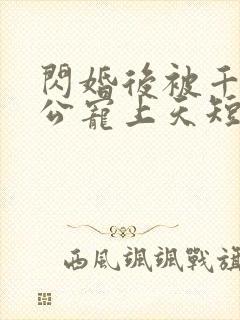 閃婚後被千
公寵上天短
西風颯颯戰旗